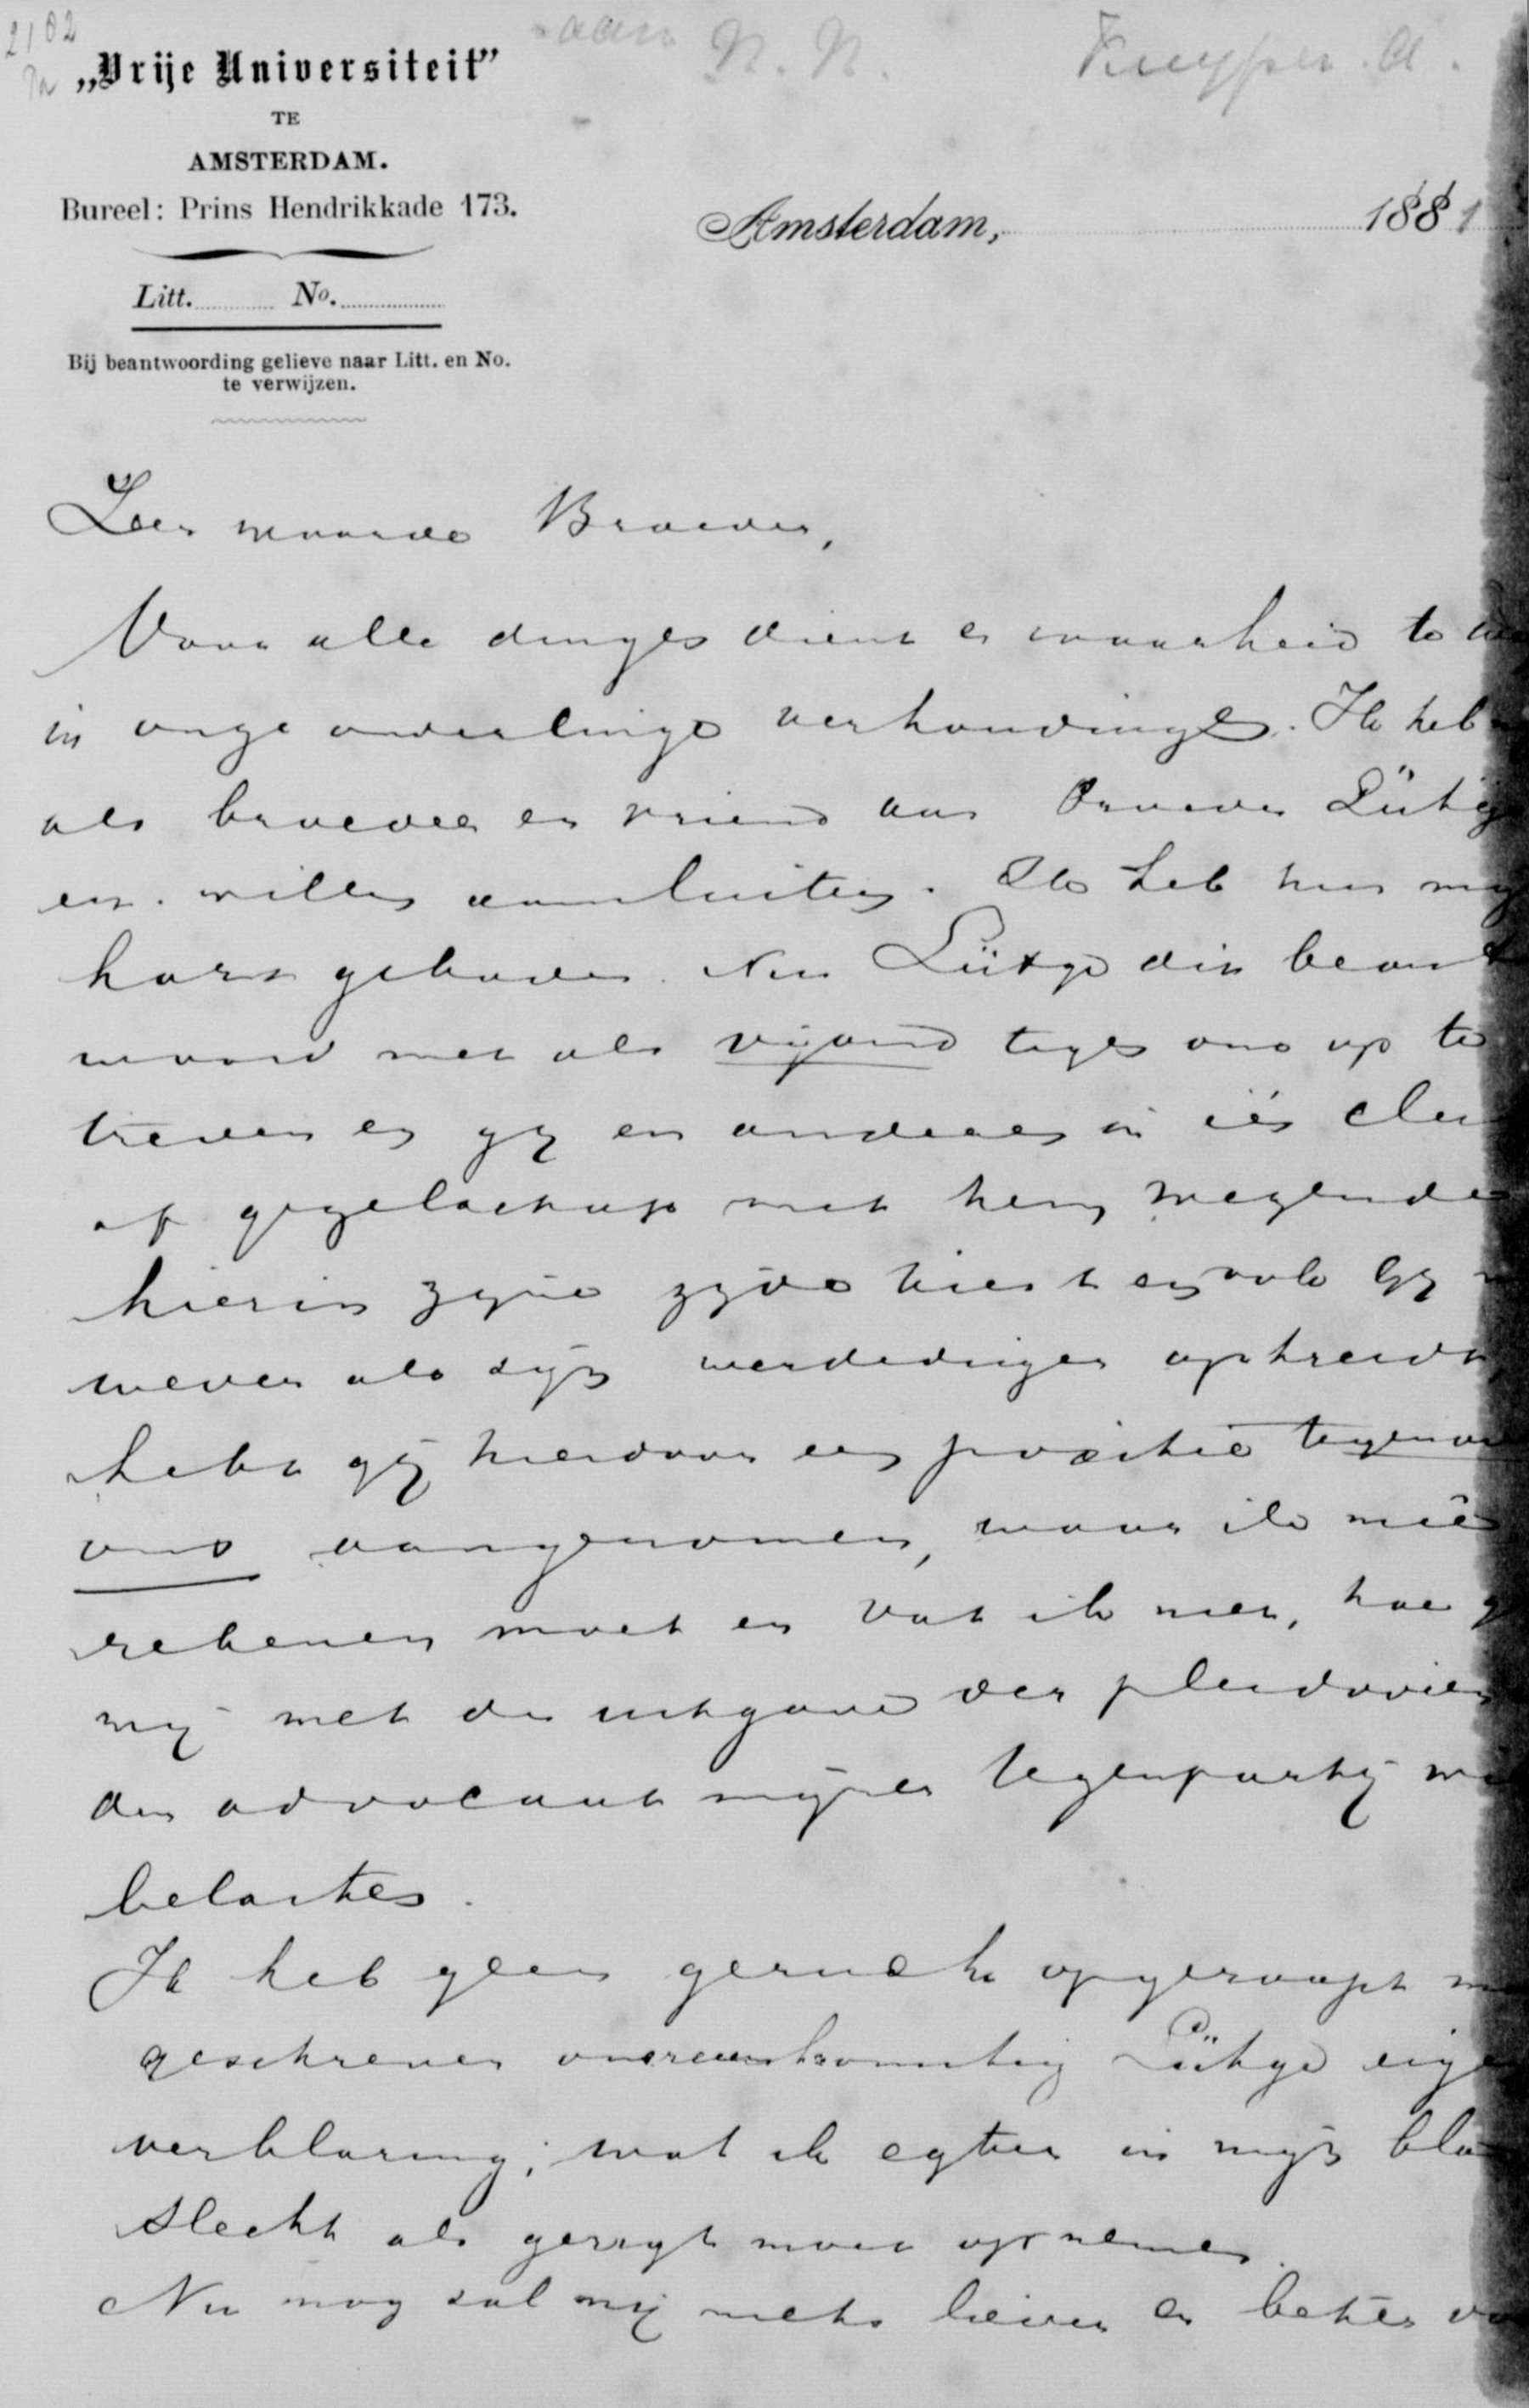 2102
aan N. N. Kuyper. A.
„Vrije Universiteit"
TE
AMSTERDAM.
Bureel: Prins Hendrikkade 173.
Amsterdam, 1881
Litt. No.
Bij beantwoording gelieve naar Litt. en No.
te verwijzen.
Zeer waarde Broeder,
Voor alle dingen dient er waarheid te
in onze onderlinge verhoudingen. Ik heb
als broeder en vriend aan Broeder Lütge
en willen aansluiten. Ik heb hem mijn
hart geboden. Nu Lütge dit beant
woord met als vijand tegen ons op te
treden en gij en anderen in één clu
of gezelschap met hem
hierin zijne zijde kiest en ook gij
weder als zijn verdediger optreedt,
hebt gij hierdoor een positie tegenov
ons aangenomen, waar ik meê
rekenen moet en vat ik niet, hoe g
mij met de uitgave der pleidooien
den advocaat mijner tegenpartij wil
belasten.
Ik heb geen gerucht opgeraapt m
geschreven overeenkomstig Lütge eige
verklaring; wat ik egter in mijn bla
slecht als gerugt moet opnemen.
Nu nog zal mij niets liever en beter